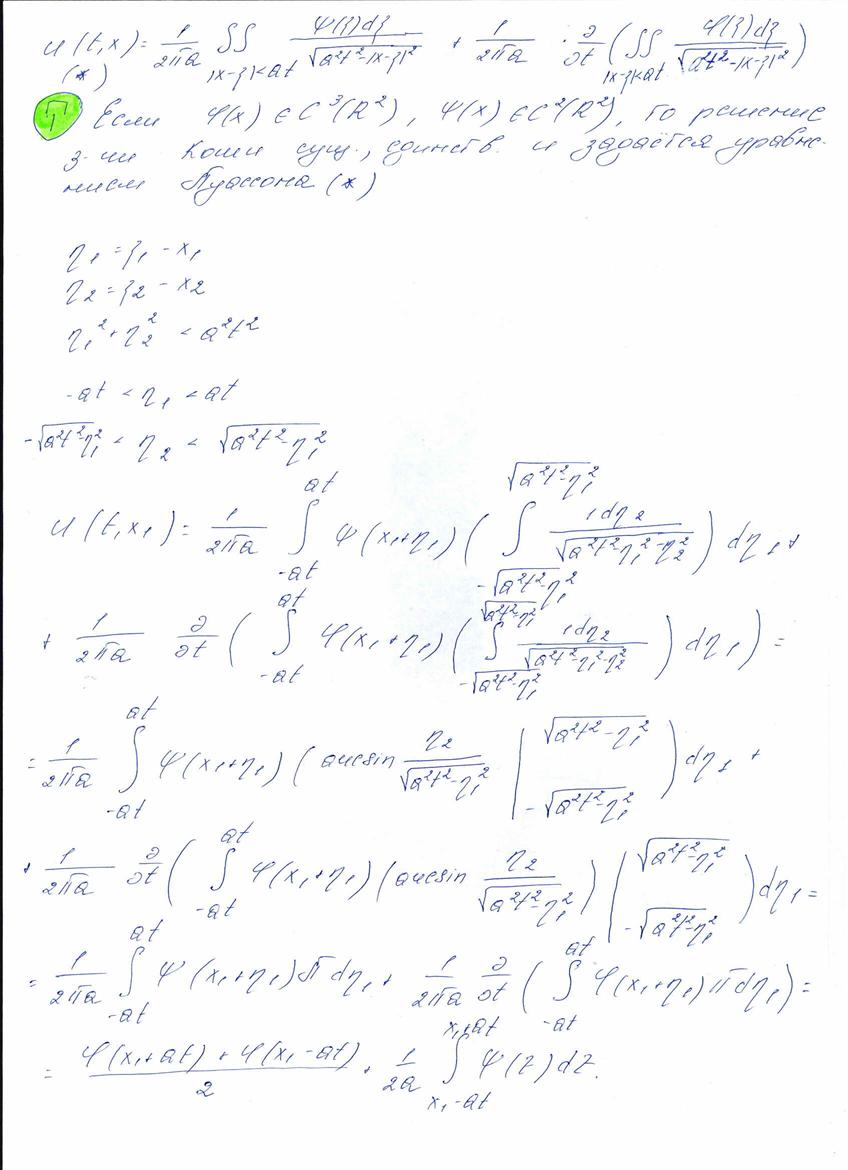 u(t,x) = 1/(2πa) ∬_{|x-ξ|<at} ψ(ξ)dξ/√(a²t²-|x-ξ|²) + 1/(2πa) · ∂/∂t (∬_{|x-ξ|<at} φ(ξ)dξ/√(a²t²-|x-ξ|²))
(*)
П Если φ(x) ∈ C³(R²), ψ(x) ∈ C²(R²), то решение
з-чи Коши сущ., единств. и задаётся уравне-
нием Пуассона (*)
η₁ = ξ₁ - x₁
η₂ = ξ₂ - x₂
η₁² + η₂² < a²t²
-at < η₁ < at
-√(a²t²-η₁²) < η₂ < √(a²t²-η₁²)
u(t,x₁) = 1/(2πa) ∫_{-at}^{at} ψ(x₁+η₁) (∫_{-√(a²t²-η₁²)}^{√(a²t²-η₁²)} 1dη₂/√(a²t²η₁²-η₂²)) dη₁ +
+ 1/(2πa) ∂/∂t (∫_{-at}^{at} φ(x₁+η₁) (∫_{-√(a²t²-η₁²)}^{√(a²t²-η₁²)} 1dη₂/√(a²t²-η₁²-η₂²)) dη₁) =
= 1/(2πa) ∫_{-at}^{at} ψ(x₁+η₁) (arcsin η₂/√(a²t²-η₁²) |_{-√(a²t²-η₁²)}^{√(a²t²-η₁²)}) dη₁ +
+ 1/(2πa) ∂/∂t (∫_{-at}^{at} φ(x₁+η₁) (arcsin η₂/√(a²t²-η₁²)) |_{-√(a²t²-η₁²)}^{√(a²t²-η₁²)}) dη₁ =
= 1/(2πa) ∫_{-at}^{at} ψ(x₁+η₁) π dη₁ + 1/(2πa) ∂/∂t (∫_{-at}^{at} φ(x₁+η₁) π dη₁) =
= (φ(x₁+at) + φ(x₁-at))/2 + 1/(2a) ∫_{x₁-at}^{x₁+at} ψ(z)dz.